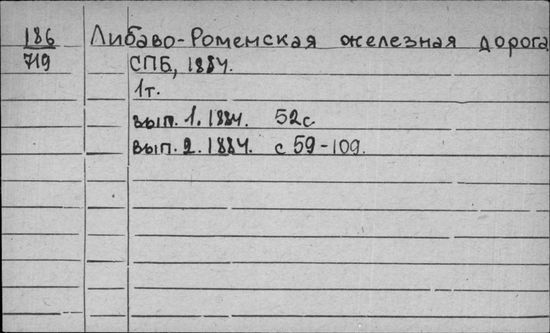 186 Либаво-Роменская железная дорога
719 СПБ, 1884.
1т.
вып. 1. 1884. 52с.
вып. 2. 1884. с 59-109.